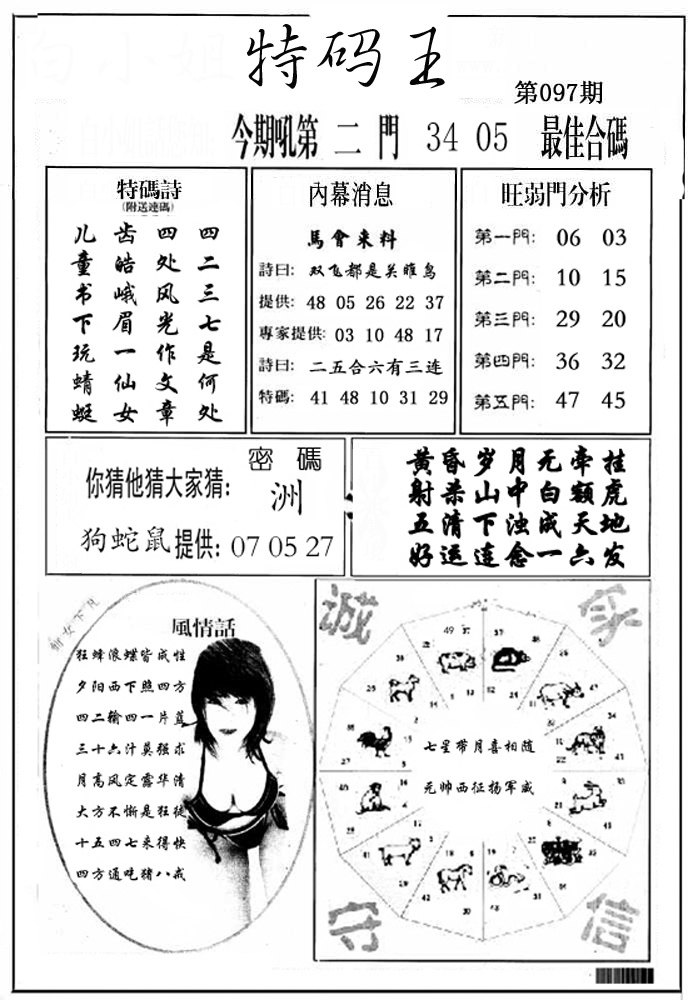 特码王
第097期
今期吼第 二 門 34 05 最佳合碼
特碼詩
(附送連碼)
四二三七是何处
四处风光作文章
齿皓峨眉一仙女
儿童书下玩蜻蜓
內幕消息
馬會来料
詩曰: 双飞都是关雎鸟
提供: 48 05 26 22 37
專家提供: 03 10 48 17
詩曰: 二五合六有三连
特碼: 41 48 10 31 29
旺弱門分析
第一門: 06 03
第二門: 10 15
第三門: 29 20
第四門: 36 32
第五門: 47 45
密碼
你猜他猜大家猜: 洲
狗蛇鼠提供: 07 05 27
黄昏岁月无牵挂
射杀山中白额虎
五清下浊成天地
好运连念一六发
女下凡
風情話
狂蜂浪蝶皆成性
夕阳西下照四方
四二输四一片蓝
三十六汁莫强求
月高风定露华清
大方不惭是狂徒
十五四七来得快
四方通吃猪八戒
诚 家
七星带月喜相随
元帅西征扬军威
守 信